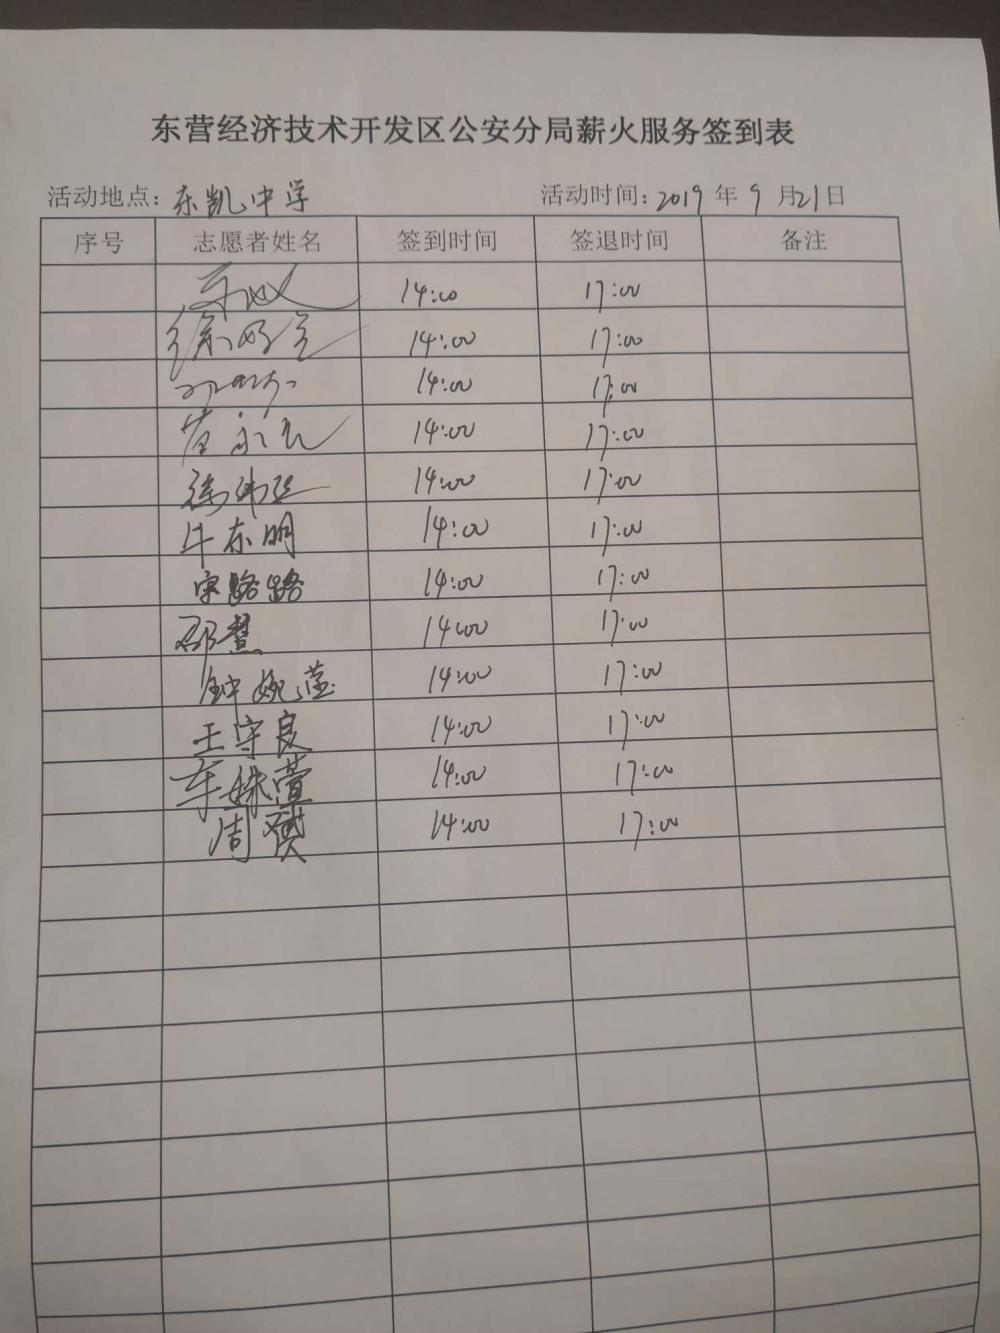 东营经济技术开发区公安分局薪火服务签到表
活动地点：东凯中学 活动时间：2019年9月21日
序号 志愿者姓名 签到时间 签退时间 备注
14:00 17:00
14:00 17:00
14:00 17:00
14:00 17:00
14:00 17:00
牛东明 14:00 17:00
宋路路 14:00 17:00
邵慧 14:00 17:00
钟婉莹 14:00 17:00
王守良 14:00 17:00
车姝萱 14:00 17:00
周赟 14:00 17:00